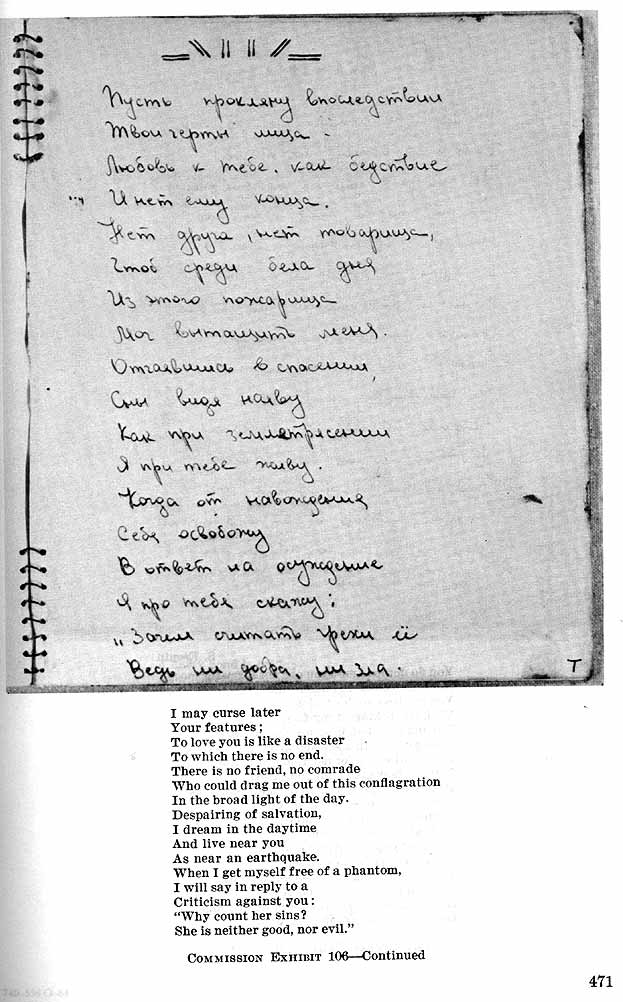 Пусть прокляну впоследствии
Твои черты лица -
Любовь к тебе. как бедствие
И нет ему конца.
Нет друга, нет товарища,
Чтоб среди бела дня
Из этого пожарища
Мог вытащить меня.
Отчаявшись в спасении,
Сны видя наяву
Как при землятрясении
Я при тебе живу.
Когда от навождения
Себя освобожу
В ответ на осуждение
Я про тебя скажу:
„Зачем считать грехи её
Ведь ни добра, ни зла.
T
I may curse later
Your features;
To love you is like a disaster
To which there is no end.
There is no friend, no comrade
Who could drag me out of this conflagration
In the broad light of the day.
Despairing of salvation,
I dream in the daytime
And live near you
As near an earthquake.
When I get myself free of a phantom,
I will say in reply to a
Criticism against you:
"Why count her sins?
She is neither good, nor evil."
COMMISSION EXHIBIT 106—Continued
471